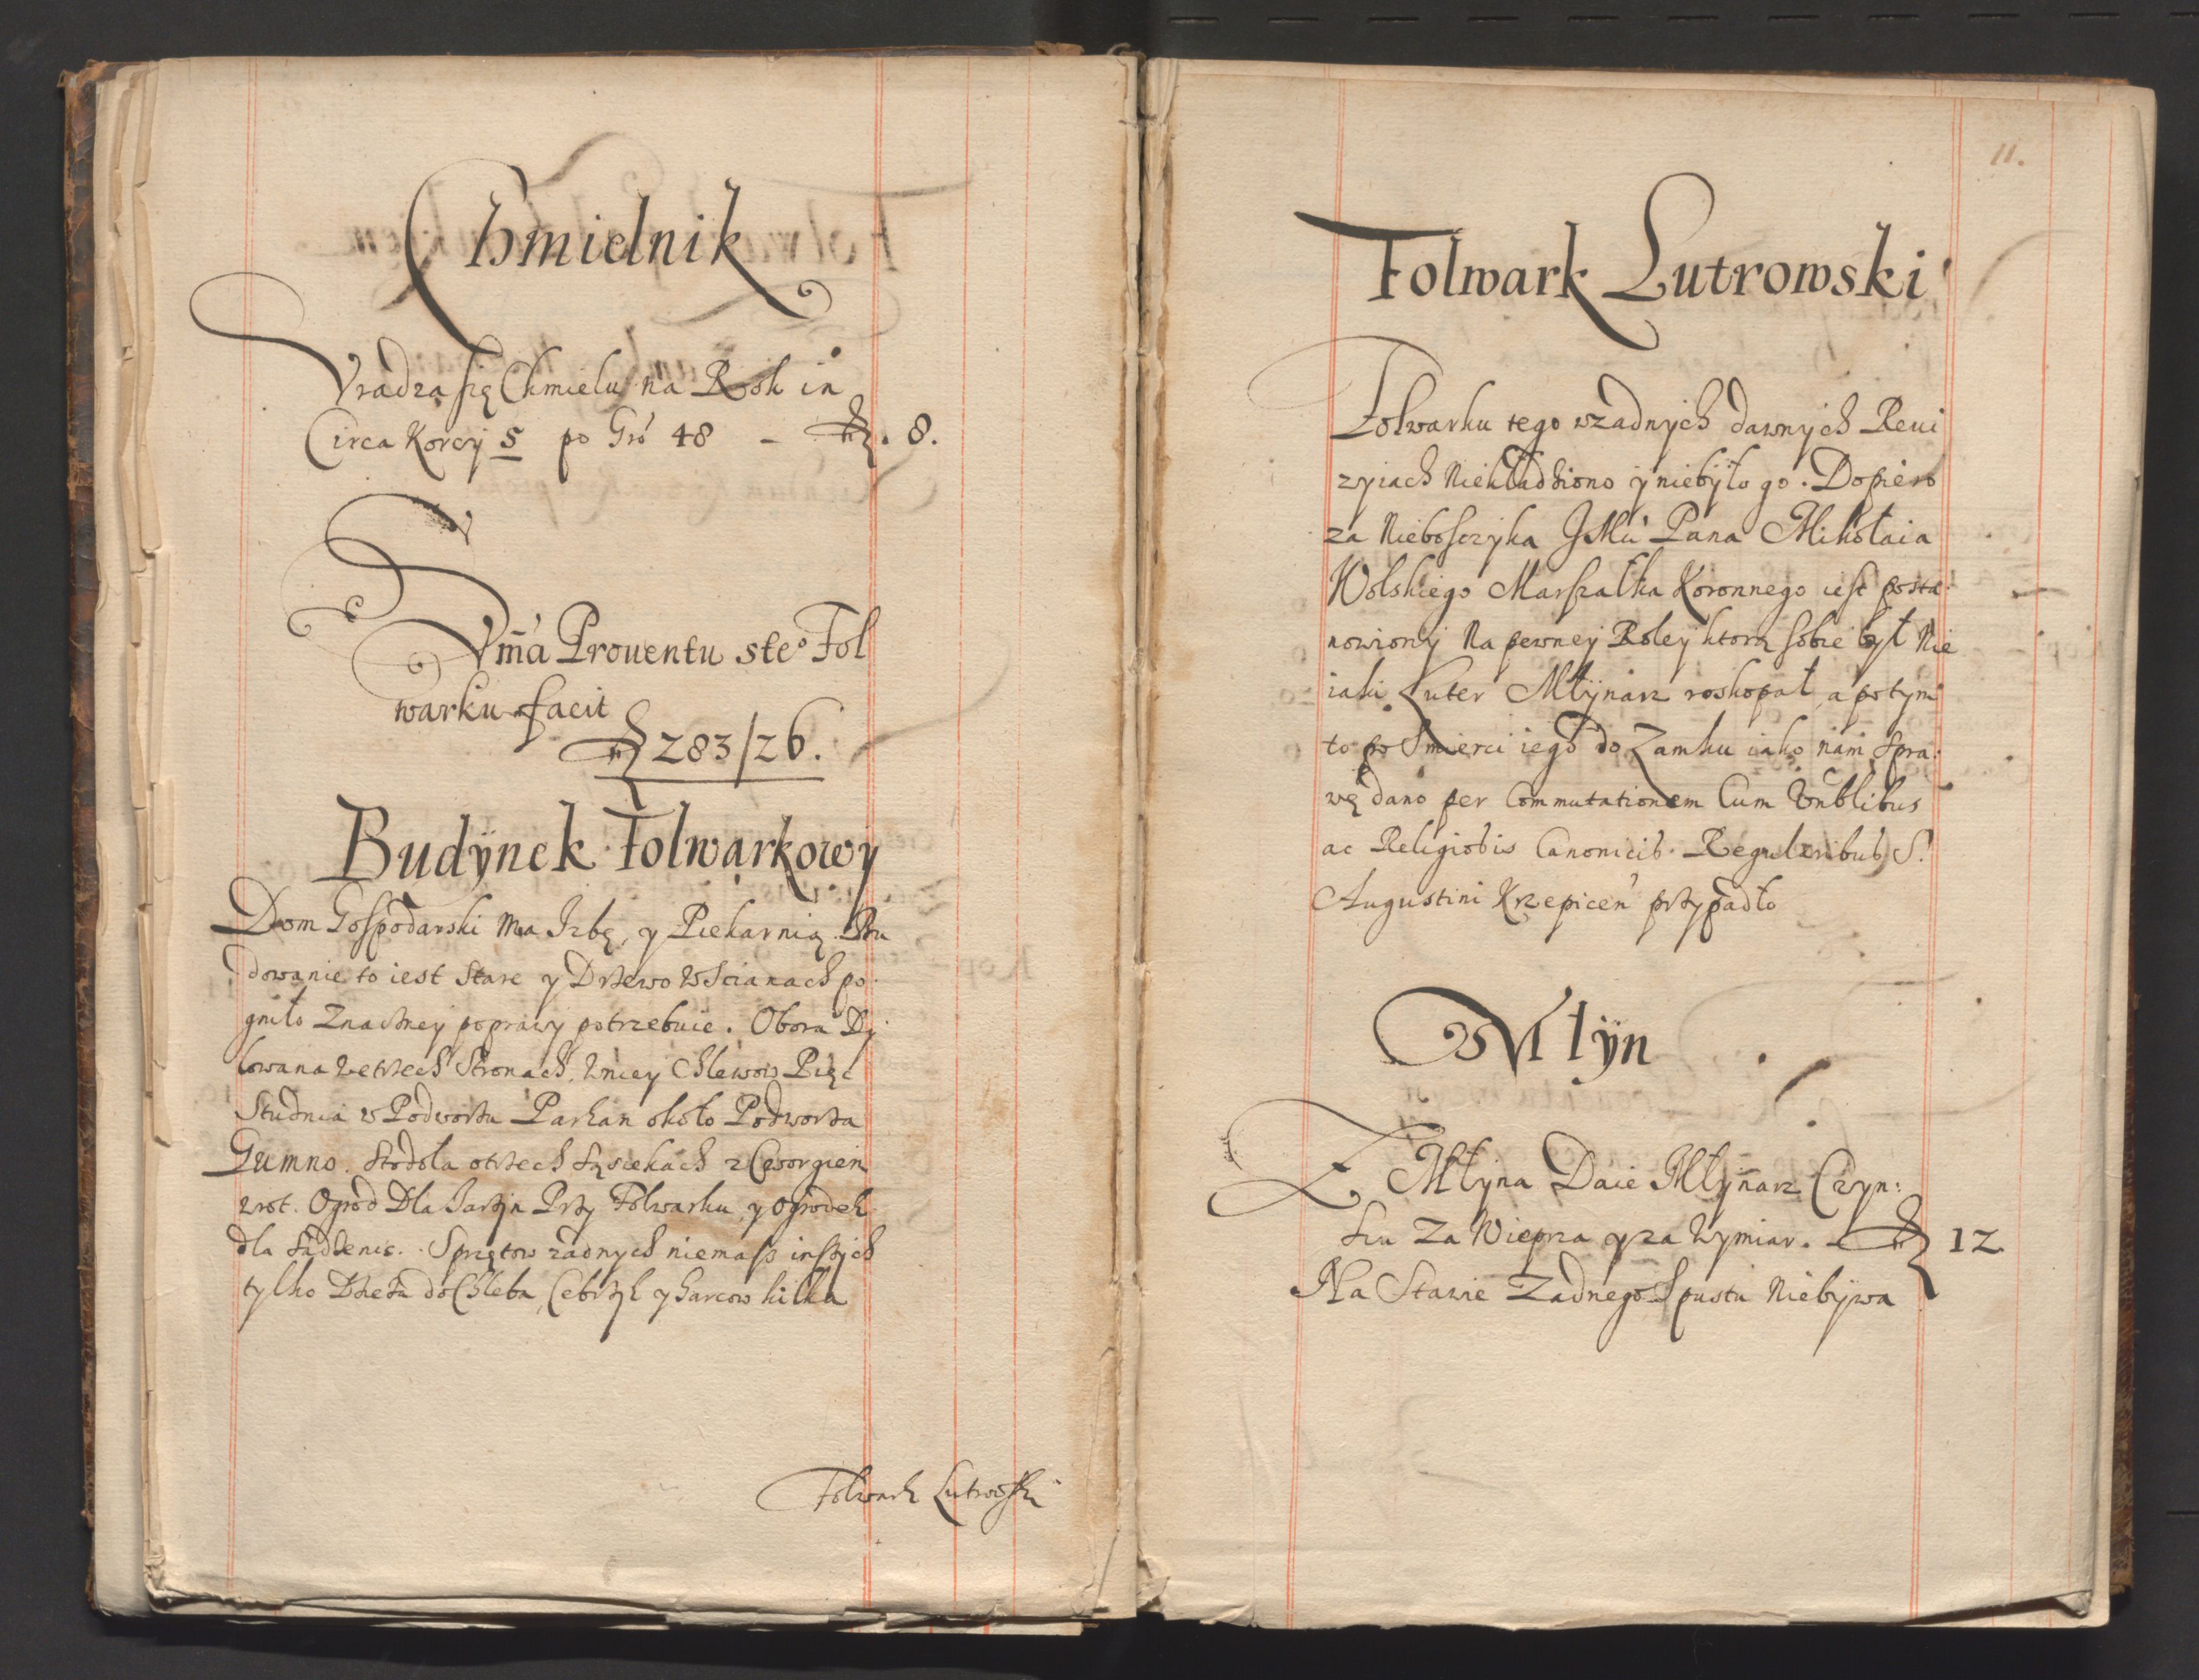 Chmielnik
Vradza się Chmielu na Rok in
Circa Korcy 5 po Gro 48 - fl. 8.
Sum̃a Prouentu steº Fol
warku facit
fl 283/26.
Budÿnek Folwarkowy
Dom Gospodarski Ma Izbę, y Piekarnią. Bu
dowanie to iest Stare y Drzewo w Scianach po
gniło Znaczney poprawy potrzebuie. Obora Dy
lowana we trzech Stronach, w niey Chlewow Pięć
Studnia w Podworzu Parkan około Podworza
Gumno. Stodoła o trzech Sąsiekach
wrot. Ogrod Dla Jarzyn Przy Folwarku, y ogrodek
dla Sadzenie. Sprzętow zadnych niemasz inszych
tylko Dzieża do Chleba, Cebrzyk y Garcow kilka
Folwark Lutrowski
11.
Folwark Lutrowski
Folwarku tego w zadnych dawnych Reui
zyiach Niekładziono y niebyło go. Dopiero
za Nieboszczyka JMci Pana Mikołaia
Wolskiego Marszałka Koronnego iest posta
nowiony Na pewney Roley ktorą sobie był Nie
iaki Luter Młÿnarz roskopał, a potym
to po Smierci iego do Zamku iako nam Spra
wę dano per Commutationem Cum Vnblibus
ac Religiosis Canonicis Regularibus S.
Augustini Krzepicen przypadło
Młÿn
Z Młyna Daie Młynarz Czyn:
szu Za Wieprza y za Wymiar. - fl 12
Na Stawie Zadnego Spustu Niebywa